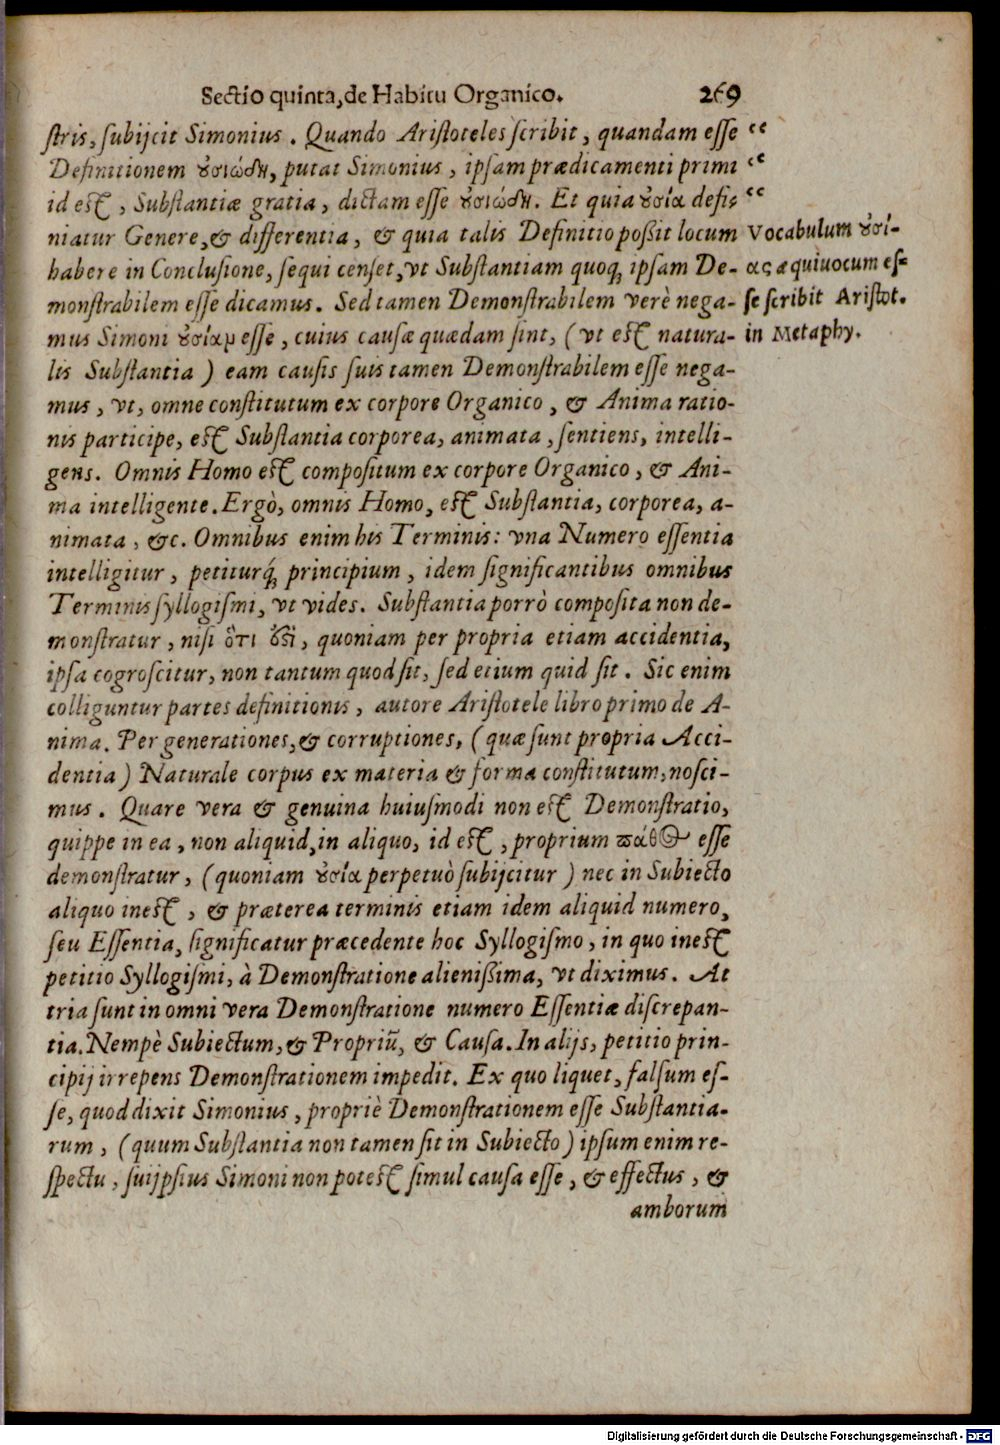 Sectio quinta, de Habitu Organico. 269
stris, subijcit Simonius. Quando Aristoteles scribit, quandam esse “
Definitionem ȣ̓σιώδη, putat Simonius, ipsam prædicamenti primi “
id est, Substantiæ gratia, dictam esse ȣ̓σιώδη. Et quia ȣ̓σία defi- “
niatur Genere, & differentia, & quia talis Definitio poßit locum
habere in Conclusione, sequi censet, vt Substantiam quoq; ipsam De-
monstrabilem esse dicamus. Sed tamen Demonstrabilem verè nega-
mus Simoni ȣ̓σίαμ esse, cuius causæ quædam sint, (vt est natura-
lis Substantia) eam causis suis tamen Demonstrabilem esse nega-
mus, vt, omne constitutum ex corpore Organico, & Anima ratio-
nis participe, est Substantia corporea, animata, sentiens, intelli-
gens. Omnis Homo est compositum ex corpore Organico, & Ani-
ma intelligente. Ergò, omnis Homo, est Substantia, corporea, a-
nimata, &c. Omnibus enim his Terminis: vna Numero essentia
intelligitur, petiturq́; principium, idem significantibus omnibus
Terminis syllogismi, vt vides. Substantia porrò composita non de-
monstratur, nisi ὅτι ἐϛὶ, quoniam per propria etiam accidentia,
ipsa cogroscitur, non tantum quod sit, sed etium quid sit. Sic enim
colliguntur partes definitionis, autore Aristotele libro primo de A-
nima. Per generationes, & corruptiones, (quæ sunt propria Acci-
dentia) Naturale corpus ex materia & forma constitutum, nosci-
mus. Quare vera & genuina huiusmodi non est Demonstratio,
quippe in ea, non aliquid, in aliquo, id est, proprium πάθος esse
demonstratur, (quoniam ȣ̓σία perpetuò subijcitur) nec in Subiecto
aliquo inest, & præterea terminis etiam idem aliquid numero,
seu Essentia, significatur præcedente hoc Syllogismo, in quo inest
petitio Syllogismi, à Demonstratione alienißima, vt diximus. At
tria sunt in omni vera Demonstratione numero Essentiæ discrepan-
tia. Nempè Subiectum, & Propriũ, & Causa. In alijs, petitio prin-
cipij irrepens Demonstrationem impedit. Ex quo liquet, falsum es-
se, quod dixit Simonius, propriè Demonstrationem esse Substantia-
rum, (quum Substantia non tamen sit in Subiecto) ipsum enim re-
spectu, suijpsius Simoni non potest simul causa esse, & effectus, &
amborum
Vocabulum ȣ̓σί-
ας æquiuocum es-
se scribit Aristot.
in Metaphy.
Digitalisierung gefördert durch die Deutsche Forschungsgemeinschaft - DFG